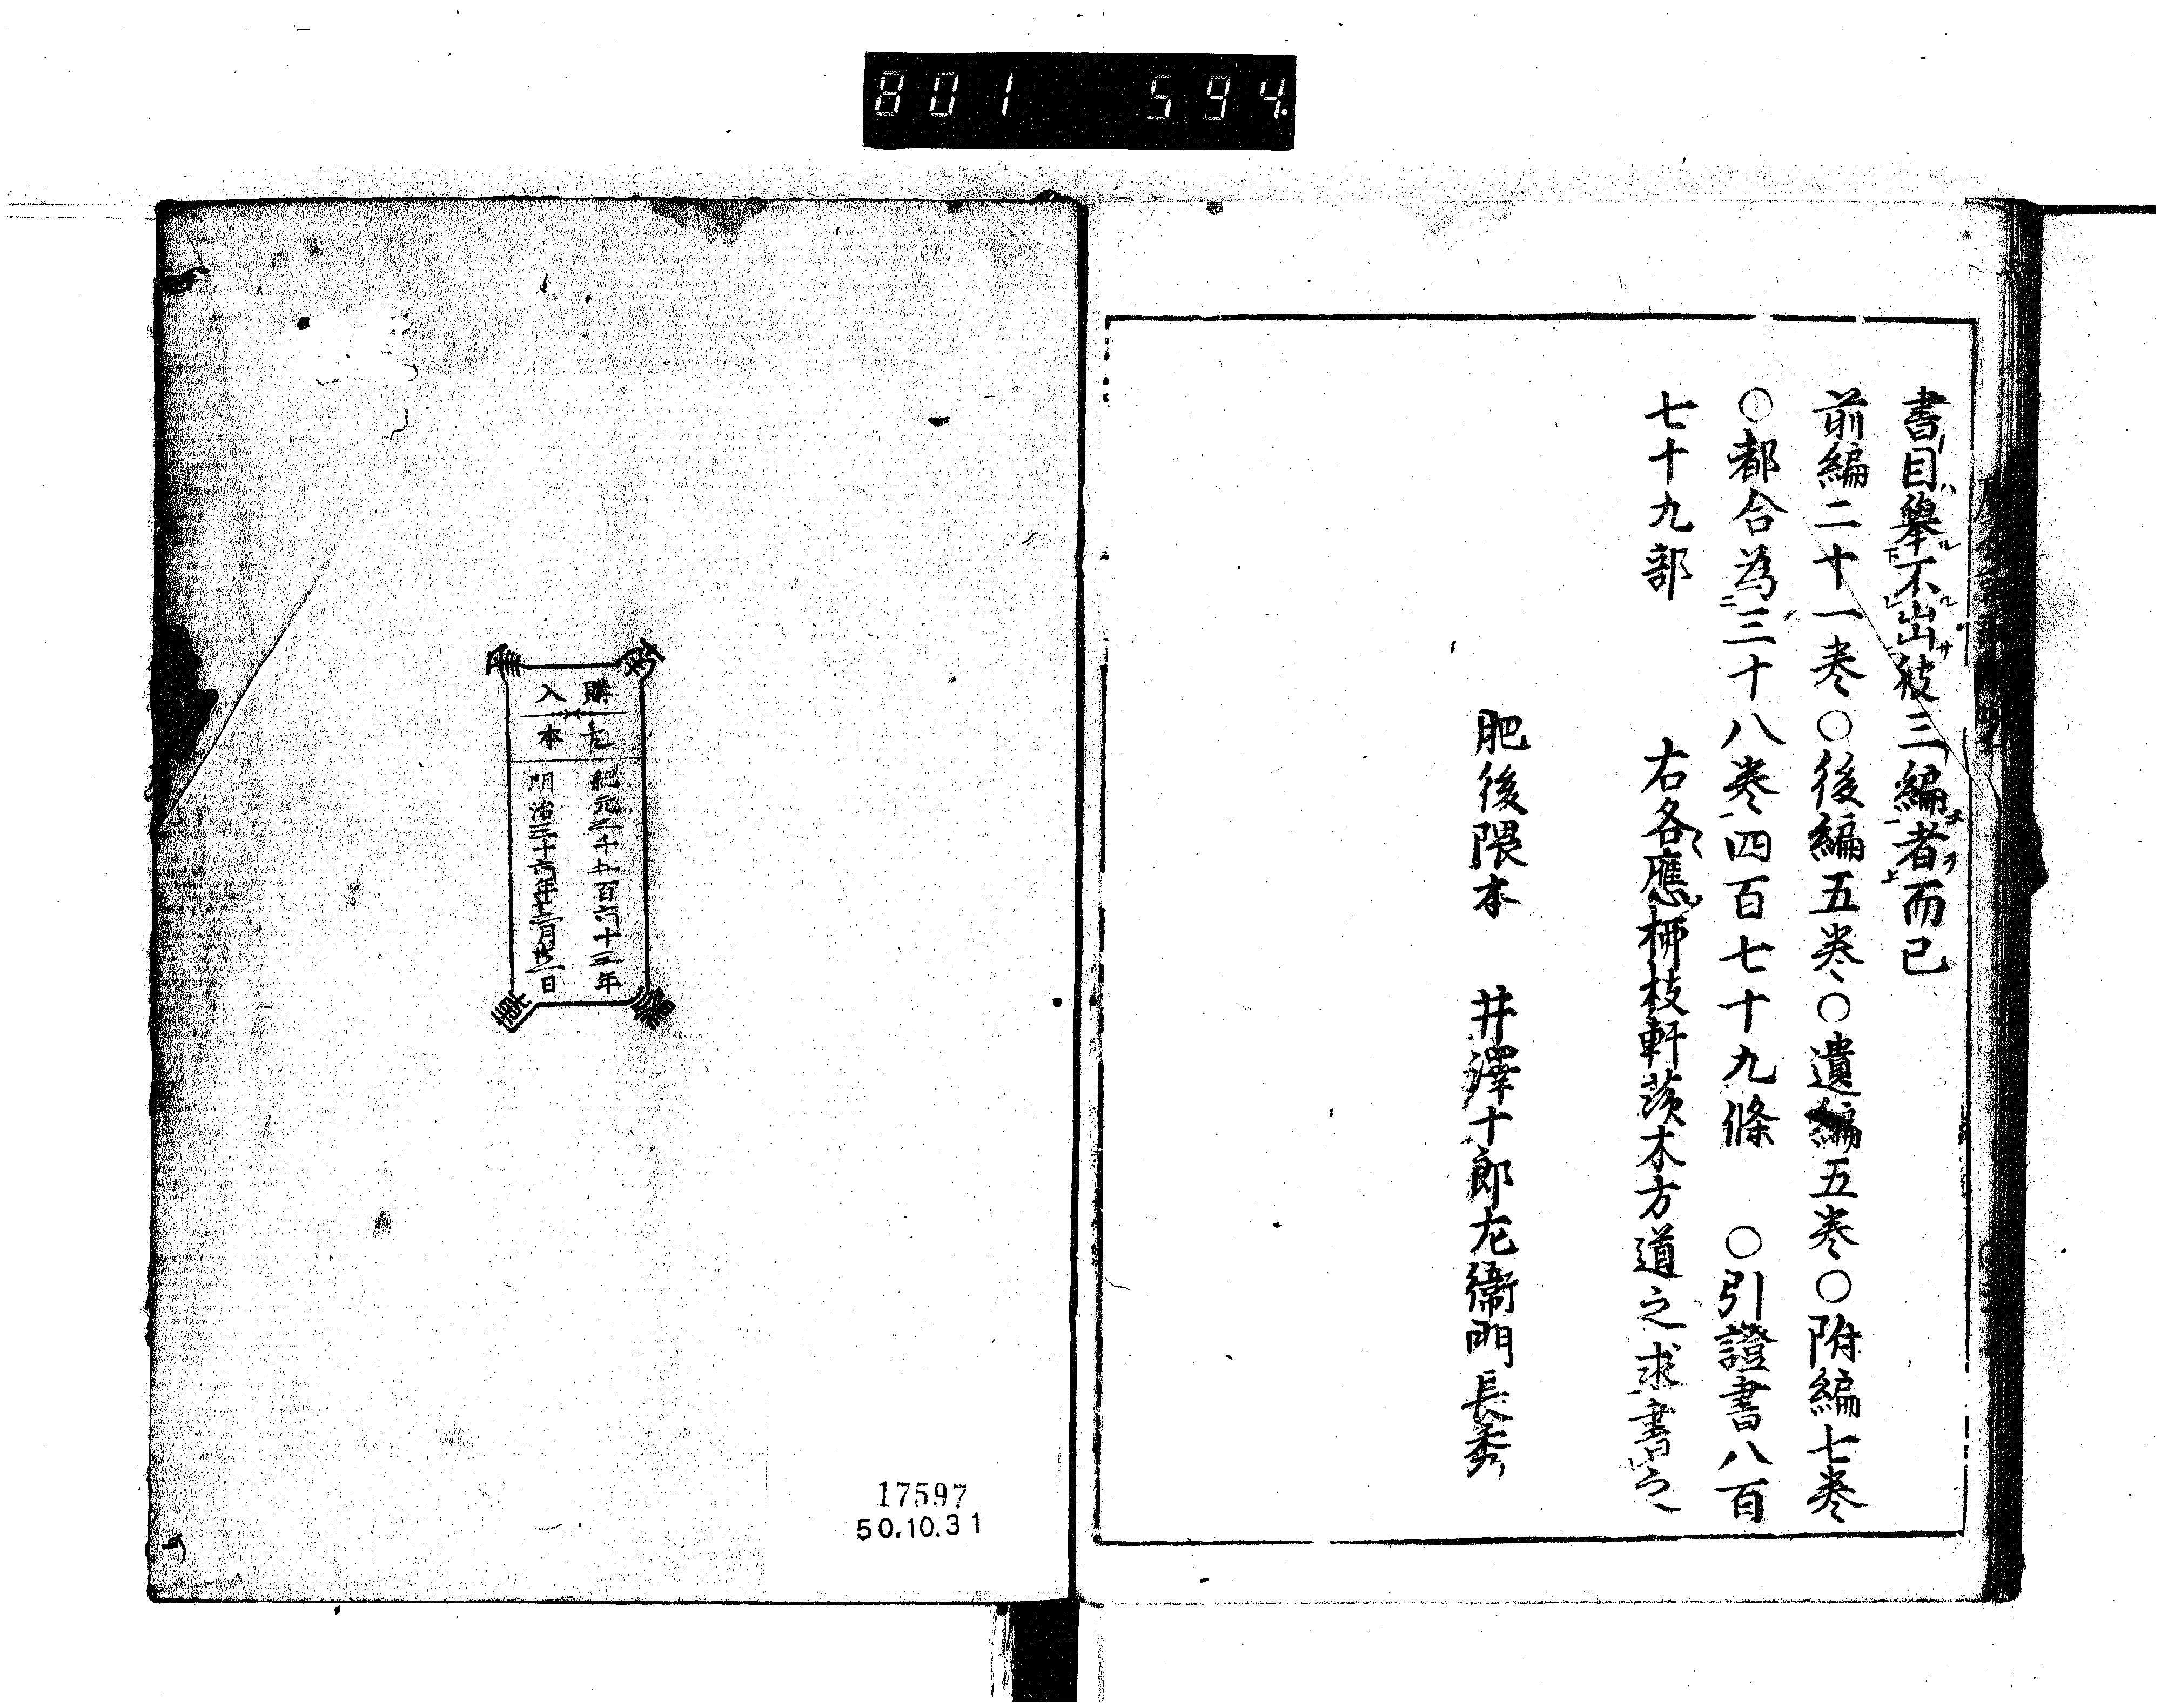 801 594
書目擧不出彼三編者而已
前編二十一巻○後編五巻○遺編五巻○附編七巻
○都合為三十八巻四百七十九條 ○引證書八百
七十九部 右各應柳枝軒茨木方道之求書之
肥後隈本 井澤十郎左衞門長秀
購入
本
紀元二千五百六十三年
明治三十六年
17597
50.10.31